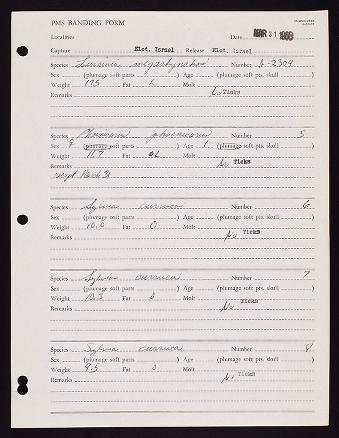 PMS BANDING FORM
Localities Date MAR 31 1968
Capture Elat, Israel Release Elat, Israel
Species Luscinia megarhynchos Number A-2304
Sex (plumage soft parts ) Age (plumage soft pts. skull )
Weight 17.5 Fat L Molt
Remarks No Ticks
Species Phoenicurus phoenicurus Number 5
Sex ♀ (plumage soft parts ) Age 1 (plumage soft pts. skull )
Weight 11.7 Fat L Molt
Remarks No Ticks
Species Sylvia curruca Number 6
Sex (plumage soft parts ) Age (plumage soft pts. skull )
Weight 10.0 Fat 0 Molt
Remarks No Ticks
Species Sylvia curruca Number 7
Sex (plumage soft parts ) Age (plumage soft pts. skull )
Weight 10.5 Fat 0 Molt
Remarks No Ticks
Species Sylvia curruca Number 8
Sex (plumage soft parts ) Age (plumage soft pts. skull )
Weight 9.5 Fat 0 Molt
Remarks No Ticks